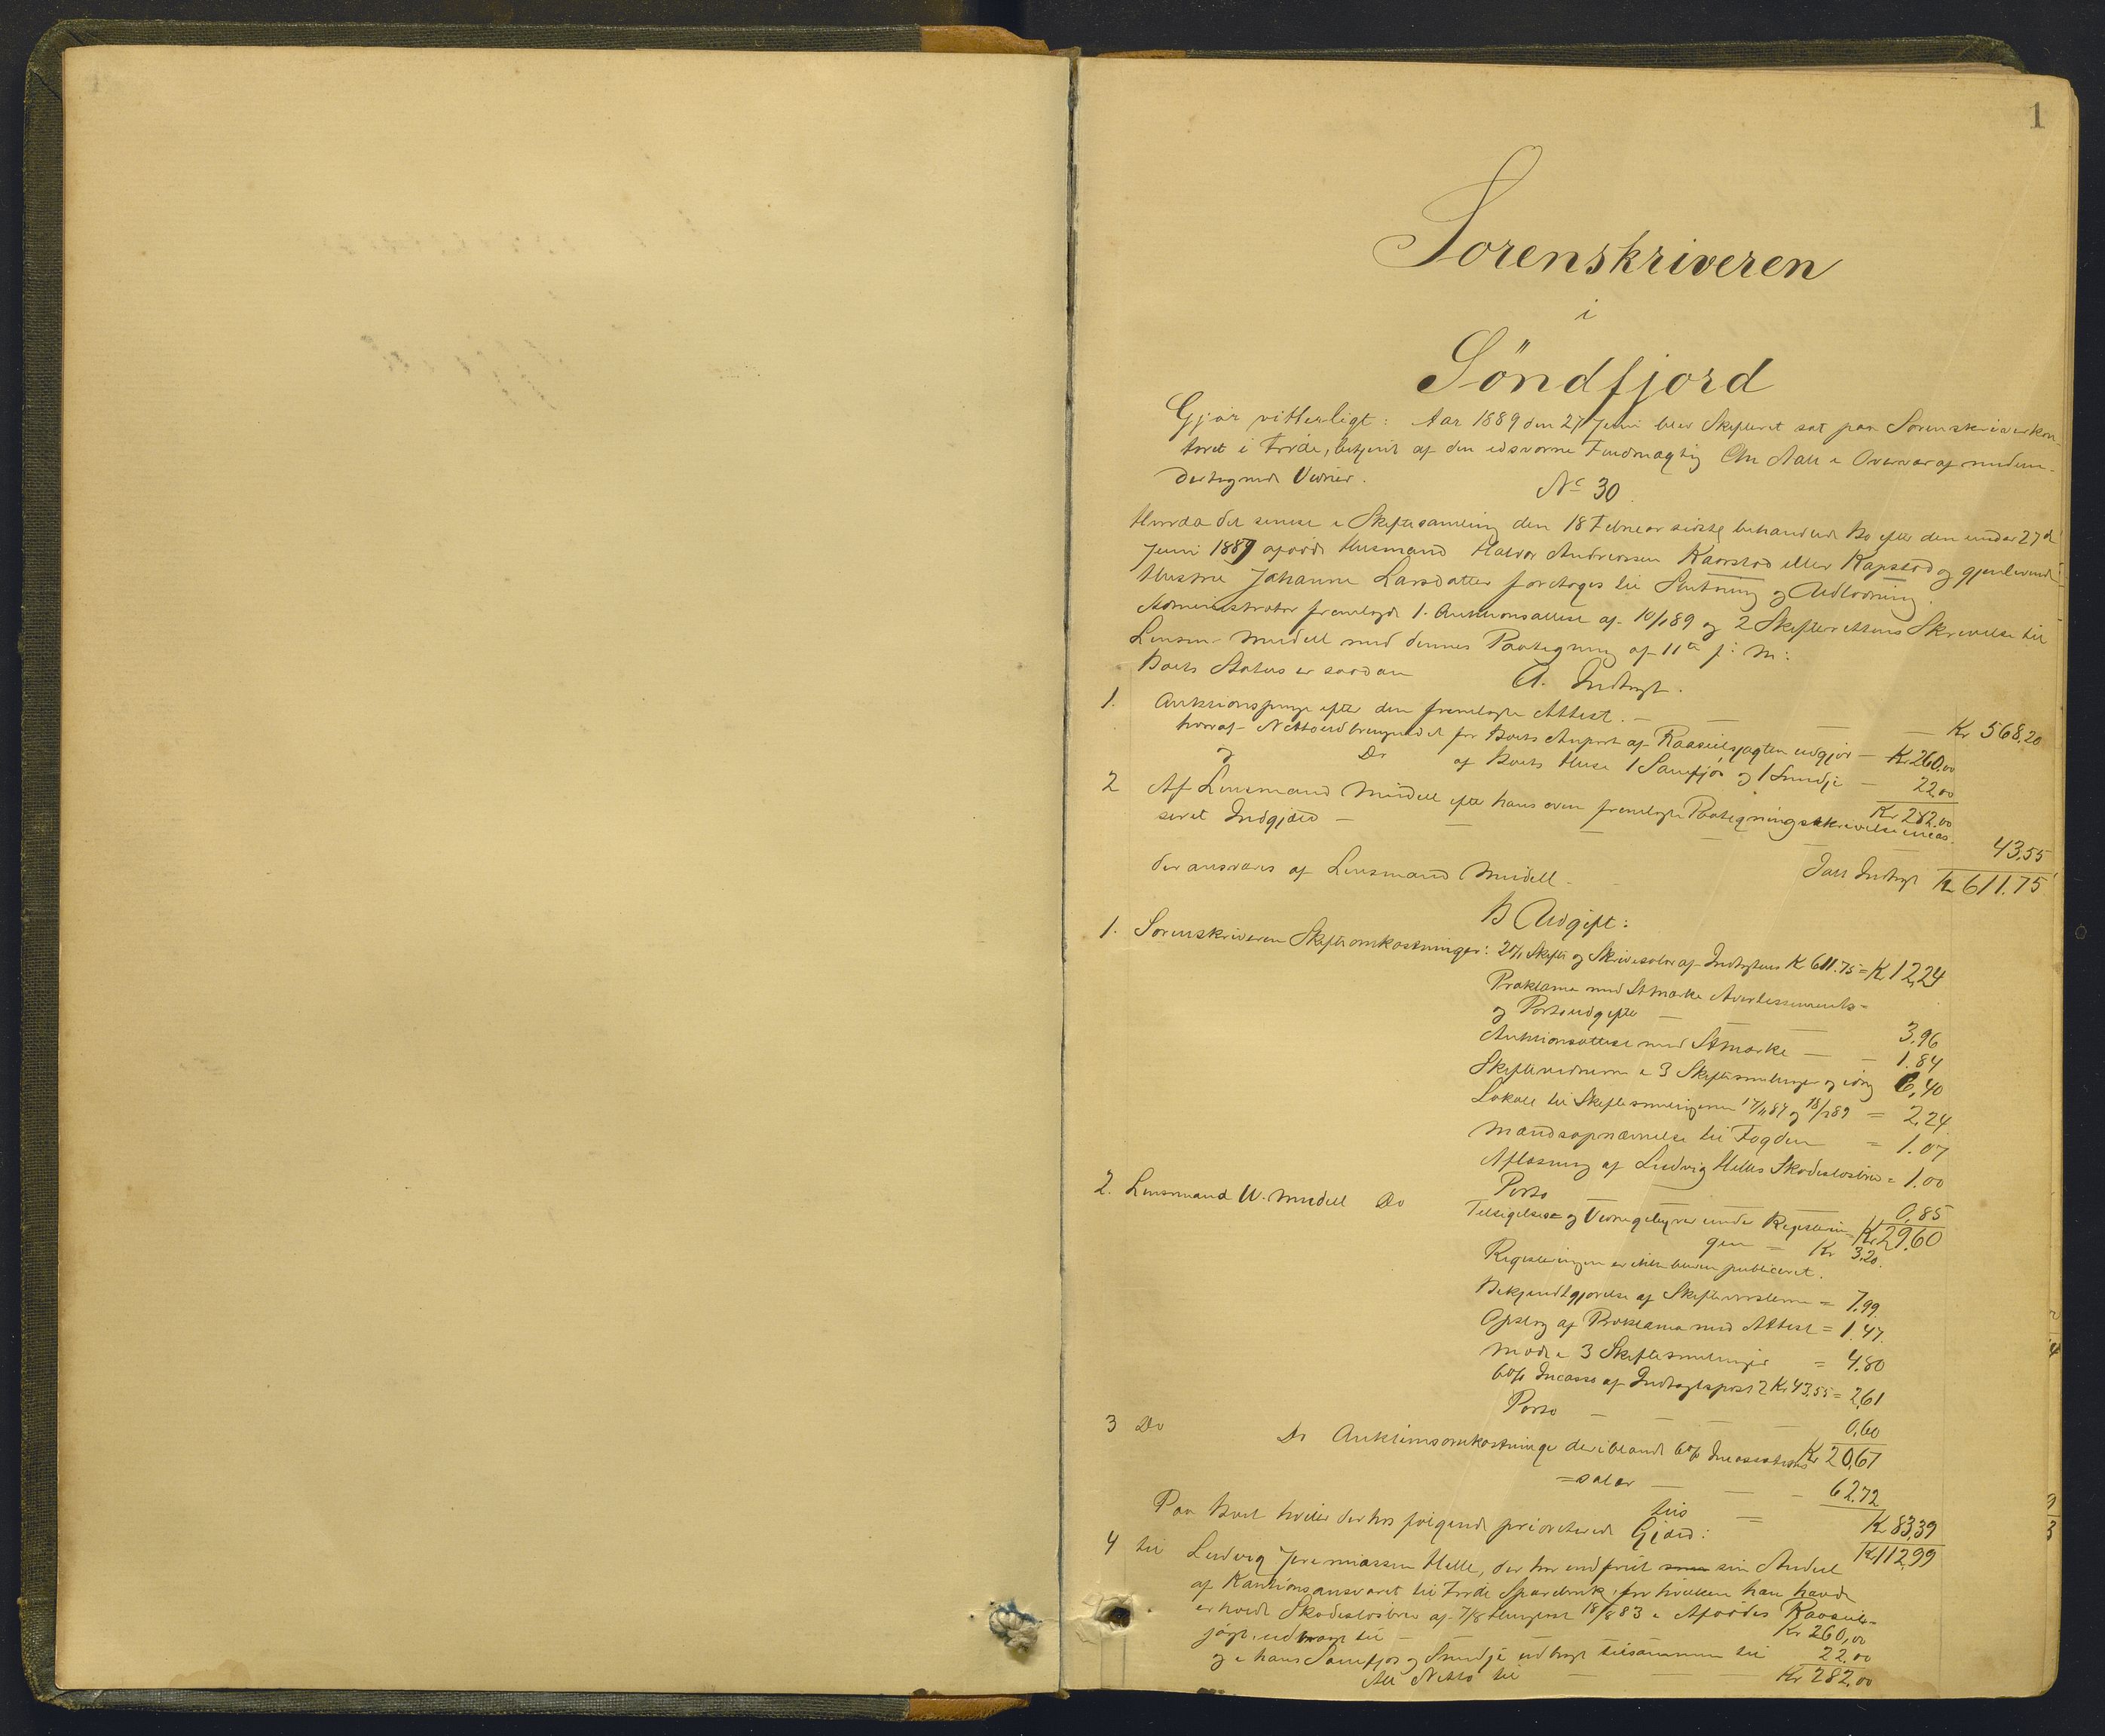 1
Sorenskriveren
i
Söndfjord
Gjør vitterligt: Aar 1889 den 27 Juni blev Skifteret sat paa Sorenskriverkon-
toret i Førde, betjent af den edsvorne Fuldmægtig Chr Aall i Overvær af meden-
dertegnede Vidner.
No 30
Hvorda det senest i Skiftesamling den 18 Februar sidstl behandlede Bo efter den under 27de
Juni 1887 afdøde Husmand Halvor Andreassen Kaarstad eller Kapstad og gjenlevende
Hustru Johanne Larsdatter foretoges til Slutning og Udlodning.
Administrator fremlagde 1. Auktionsattest af 10/ 89 og 2 Skifterettens Skrivelse til
Lensm. Mindell med dennes Paategning af 11te f: M:
Boets Status er saadan
A. Indtægt.
1. Auktionspenge efter den fremlagte Attest. — — — — Kr 568,20
hvoraf Nettoudbringendet for Boets Anpart af Raaseilsjagten udgjør — Kr 260,00
og Do af Boets Huse 1 og 1 — 22,00
Kr 282,00
2 Af Lensmand Mindell efter hans oven fremlagte Paategningsskrivelse incas-
seret Indgjæld — — — — — 43,55
Tils Indtægt Kr 611.75
der ansvares af Lensmand Mindell.
B Udgift:
1. Sorenskriveren Skifteomkostninger: 2% Skifte og Skriversalær af Indtægtens K 611.75 = K 12,24
Proklama med St.mærke Avertissements-
og Portoudgifter — — — 3,96
Auktionsattest med Stmærke — — 1.84
Skiftevidnerne i 3 Skiftesamlinger og idag 6,40
Lokale til Skiftesamlingerne 17/11 87 og 18/2 89 = 2,24
Mændsopnævnelse til Fogden = 1.07
Aflæsning af Ludvig Helles Skadesløsbrev = 1.00
Porto — — — 0,85
Kr 29.60
2. Lensmand W. Mindell Do Tilsigelses= og Vidnegebyrer under Registerin
gen = Kr 3.20.
Registeringen er ikke bleven publiceret.
Bekjendtgjørelse af Skiftevarslerne = 7.99
Opslag af Proklama med Attest = 1.47.
Møde i 3 Skiftesamlinger = 4.80
6% Incasso af Indtægtspost 2 Kr 43,55 = 2,61
Porto — — — — 0,60
Kr 20,67
3 Do Do Auktionsomkostninger deriblandt 6% Incasations
=salær — — — 62.72
tils = K 83,39
K 112,99
Paa Boet hviler derhos følgende prioriterede Gjæld:
4 til Ludvig Jeremiassen Helle, der har indfriet sin Andeel
af Kautionsansvaret til Førde Sparebank, for hvilken han havde
erholdt Skadesløsbrev af 7/8 thinglæst 18/8 83 i Afdødes Raaseil-
jagt, udbragt til — — — Kr 260,00
og i hans og udbragt tilsammen til 22.00
Alt Netto til — — Kr 282,00